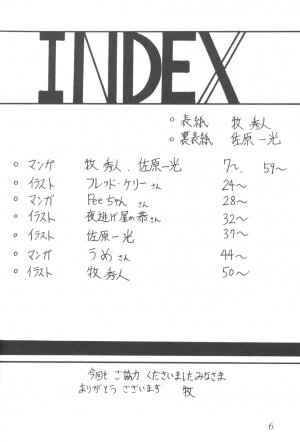 INDEX
○ 表紙 牧 秀人
○ 裏表紙 佐原一光
○ マンガ 牧 秀人、佐原一光 7〜、59〜
○ イラスト フレッド・ケリーさん 24〜
○ マンガ Peeちゃんさん 28〜
○ イラスト 夜逃げ屋の恭さん 32〜
○ イラスト 佐原一光 37〜
○ マンガ うめさん 44〜
○ イラスト 牧 秀人 50〜
今回も ご協力 くださいましたみなさま
ありがとう ございます 牧
6